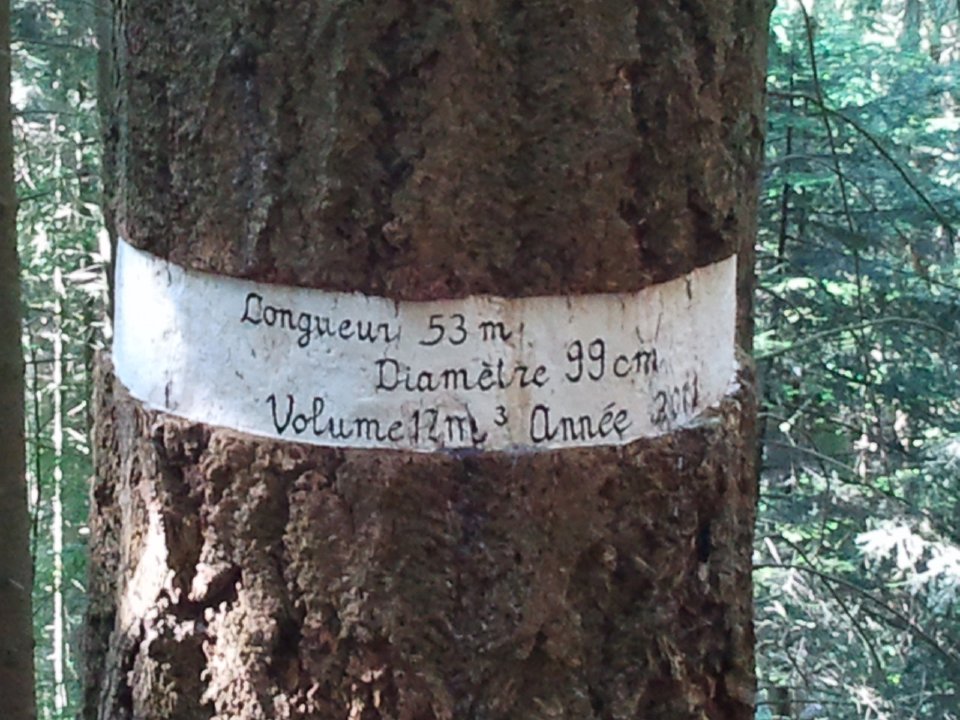 Longueur 53 m
Diamètre 99 cm
Volume 17 m³ Année